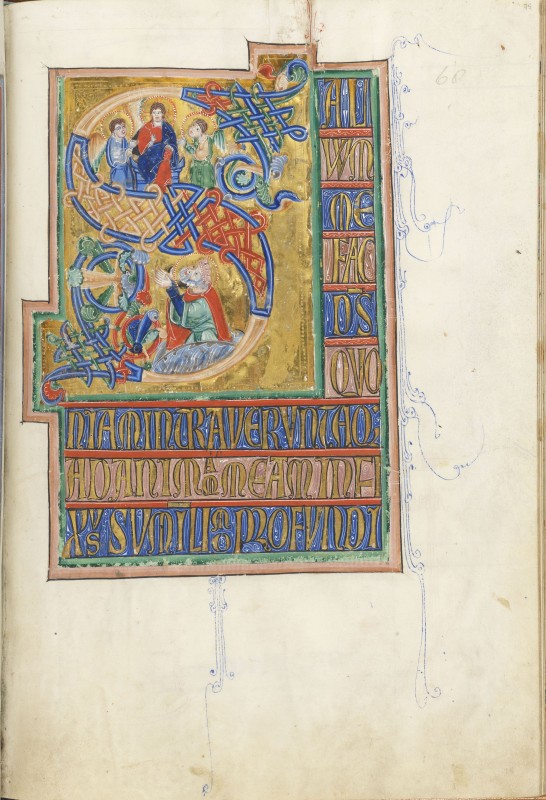 60
SAL
VUM
ME
FAC
DS
QUO
NIAM INTRAVERUNT AQ
AD ANIMAM MEAM INFI
XUS SUM I LIMO PROFUNDI